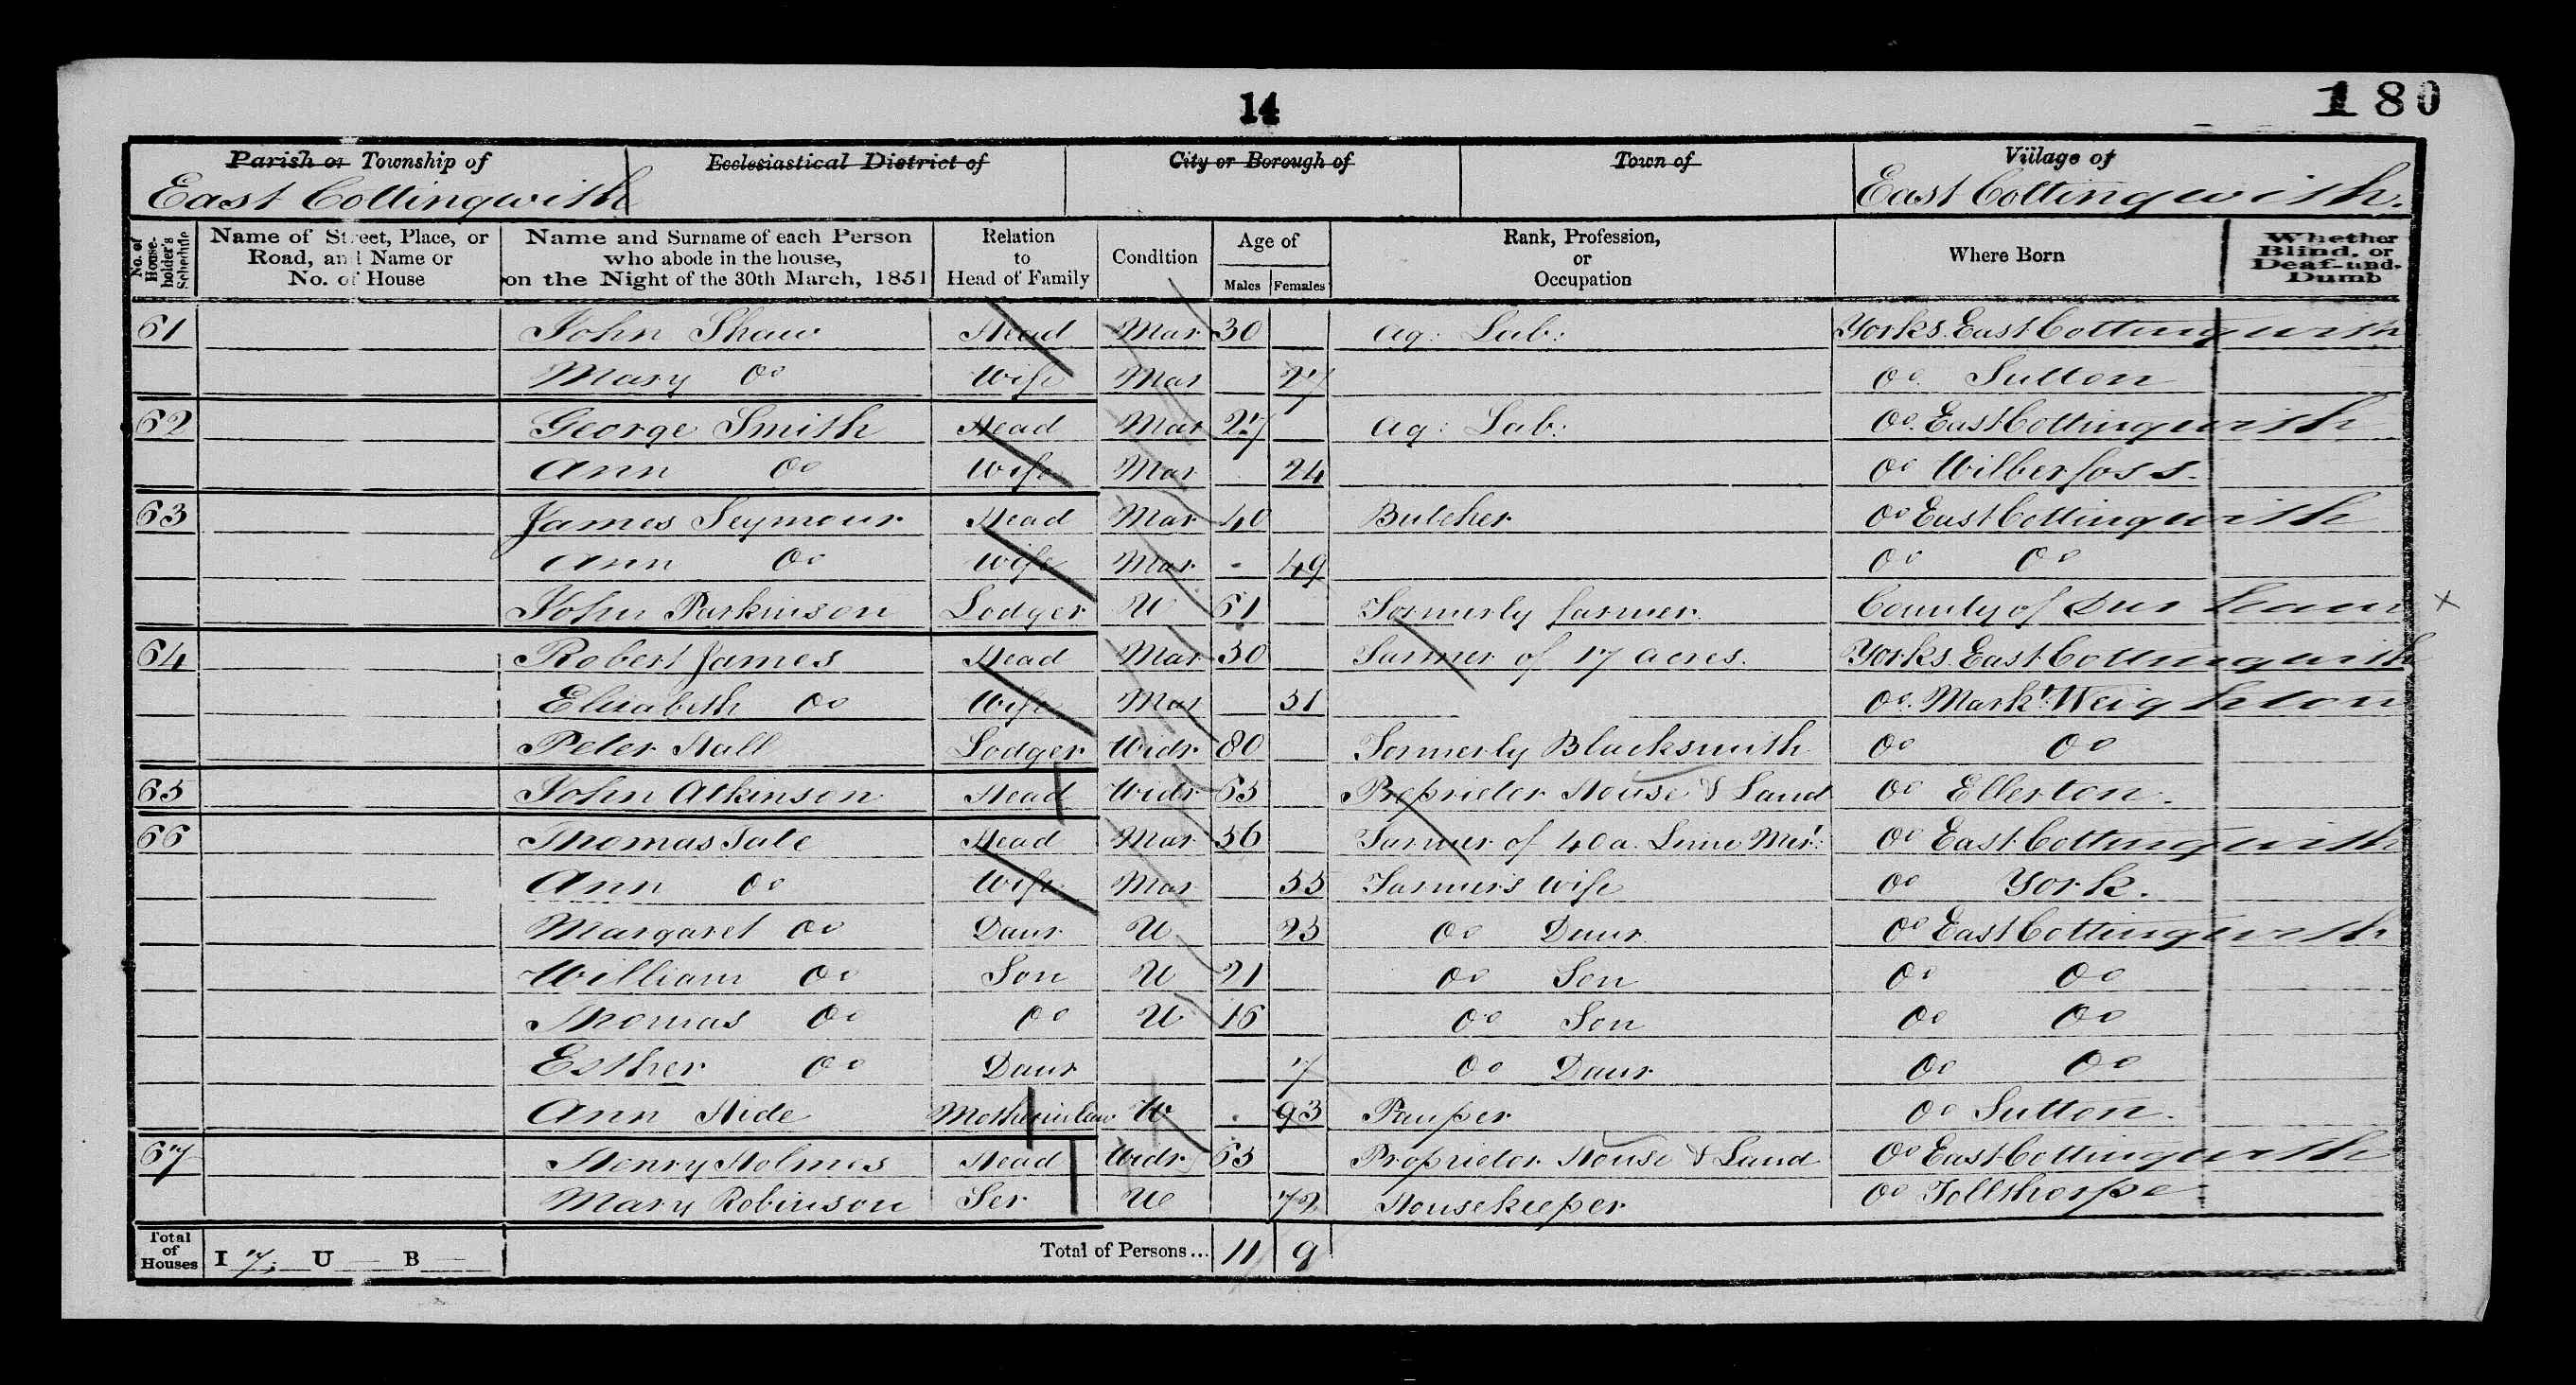 14
180
Parish or Township of Ecclesiastical District of City or Borough of Town of Village of
East Cottingwith East Cottingwith.
No. of House-holder's Schedule Name of Street, Place, or Road, and Name or No. of House Name and Surname of each Person who abode in the house, on the Night of the 30th March, 1851 Relation to Head of Family Condition Age of Males Females Rank, Profession, or Occupation Where Born Whether Blind, or Deaf-and-Dumb
61 John Shaw Head Mar 30 Ag: Lab: Yorks. East Cottingwith
Mary Do Wife Mar 27 Do. Sutton
62 George Smith Head Mar 27 Ag: Lab: Do. East Cottingwith
Ann Do Wife Mar 24 Do Wilberfoss.
63 James Seymour Head Mar 40 Butcher Do East Cottingwith
Ann Do Wife Mar 49 Do Do
John Parkinson Lodger U 61 Formerly farmer. County of Durham X
64 Robert James Head Mar 50 Farmer of 17 acres. Yorks. East Cottingwith
Elizabeth Do Wife Mar 51 Do. Markt. Weighton
Peter Hall Lodger Widr 80 Formerly Blacksmith Do Do
65 John Atkinson Head Widr 65 Proprietor House & Land Do Ellerton.
66 Thomas Tate Head Mar 56 Farmer of 40 a. Lime Mert: Do East Cottingwith
Ann Do Wife Mar 55 Farmer's wife Do York.
Margaret Do Daur U 25 Do Daur Do East Cottingwith
William Do Son U 21 Do Son Do Do
Thomas Do Do U 16 Do Son Do Do
Esther Do Daur 7 Do Daur Do Do
Ann Hide Mother in law W 93 Pauper Do Sutton.
67 Henry Holmes Head Widr 65 Proprietor House & Land Do East Cottingwith
Mary Robinson Ser U 72 Housekeeper Do Tollthorpe
Total of Houses I 7 U B Total of Persons... 11 9